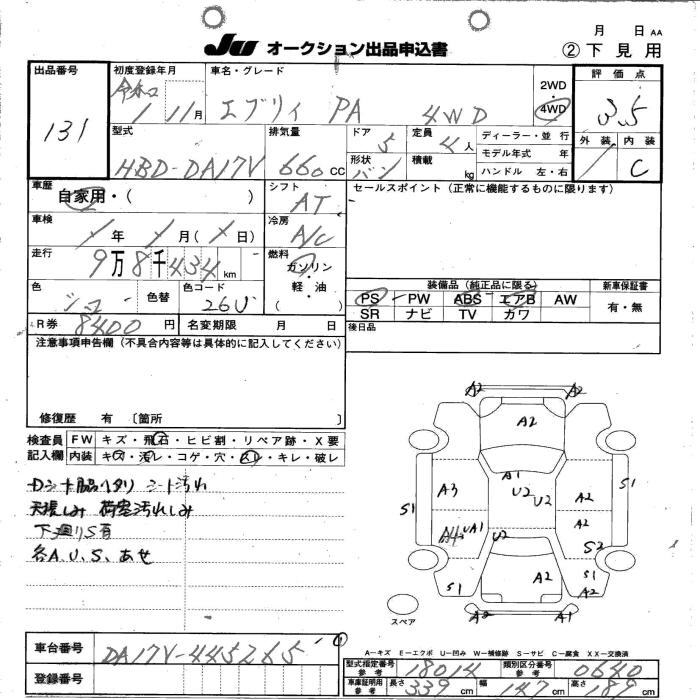 月 日 AA
Ju オークション出品申込書 ② 下見用
出品番号 131
初度登録年月 令和 1 11月
車名・グレード エブリィ PA 4WD
2WD 4WD
評価点 3.5
外装 内装 C
型式 HBD-DA17V
排気量 660 cc
ドア 5
定員 4人
形状 バン
積載 kg
ディーラー・並行
モデル年式 年
ハンドル 左・右
車歴 自家用・( )
シフト AT
セールスポイント(正常に機能するものに限ります)
車検 年 月(日)
冷房 A/C
走行 9万8千434km
燃料 ガソリン・軽油 ( )
色 シロ 色替
色コード 26U
装備品(純正品に限る) 新車保証書
PS PW ABS エアB AW
SR ナビ TV カワ
有・無
R券 8400円
名変期限 月 日
後日品
注意事項申告欄(不具合内容等は具体的に記入してください)
修復歴 有 〔箇所 〕
検査員記入欄
FW キズ・飛石・ヒビ割・リペア跡・X要
内装 キズ・汚レ・コゲ・穴・スレ・キレ・破レ
Dシート シート汚れ
天張しみ 荷室汚れしみ
下廻りS有
各A.U.S、あせ
A2 A2
A2
A1
A3 U2 U2 A2
S1 S1
A2
UA1 U2
S2
S1 A2 S1
A2
A2 A1
スペア
A-キズ E-エクボ U-凹み W-補修跡 S-サビ C-腐食 XX-交換済
車台番号 DA17V-445265
登録番号
型式指定番号 参考 18014
類別区分番号 参考 0640
車庫証明用 参考 長さ 339cm 幅 147cm 高さ 189cm